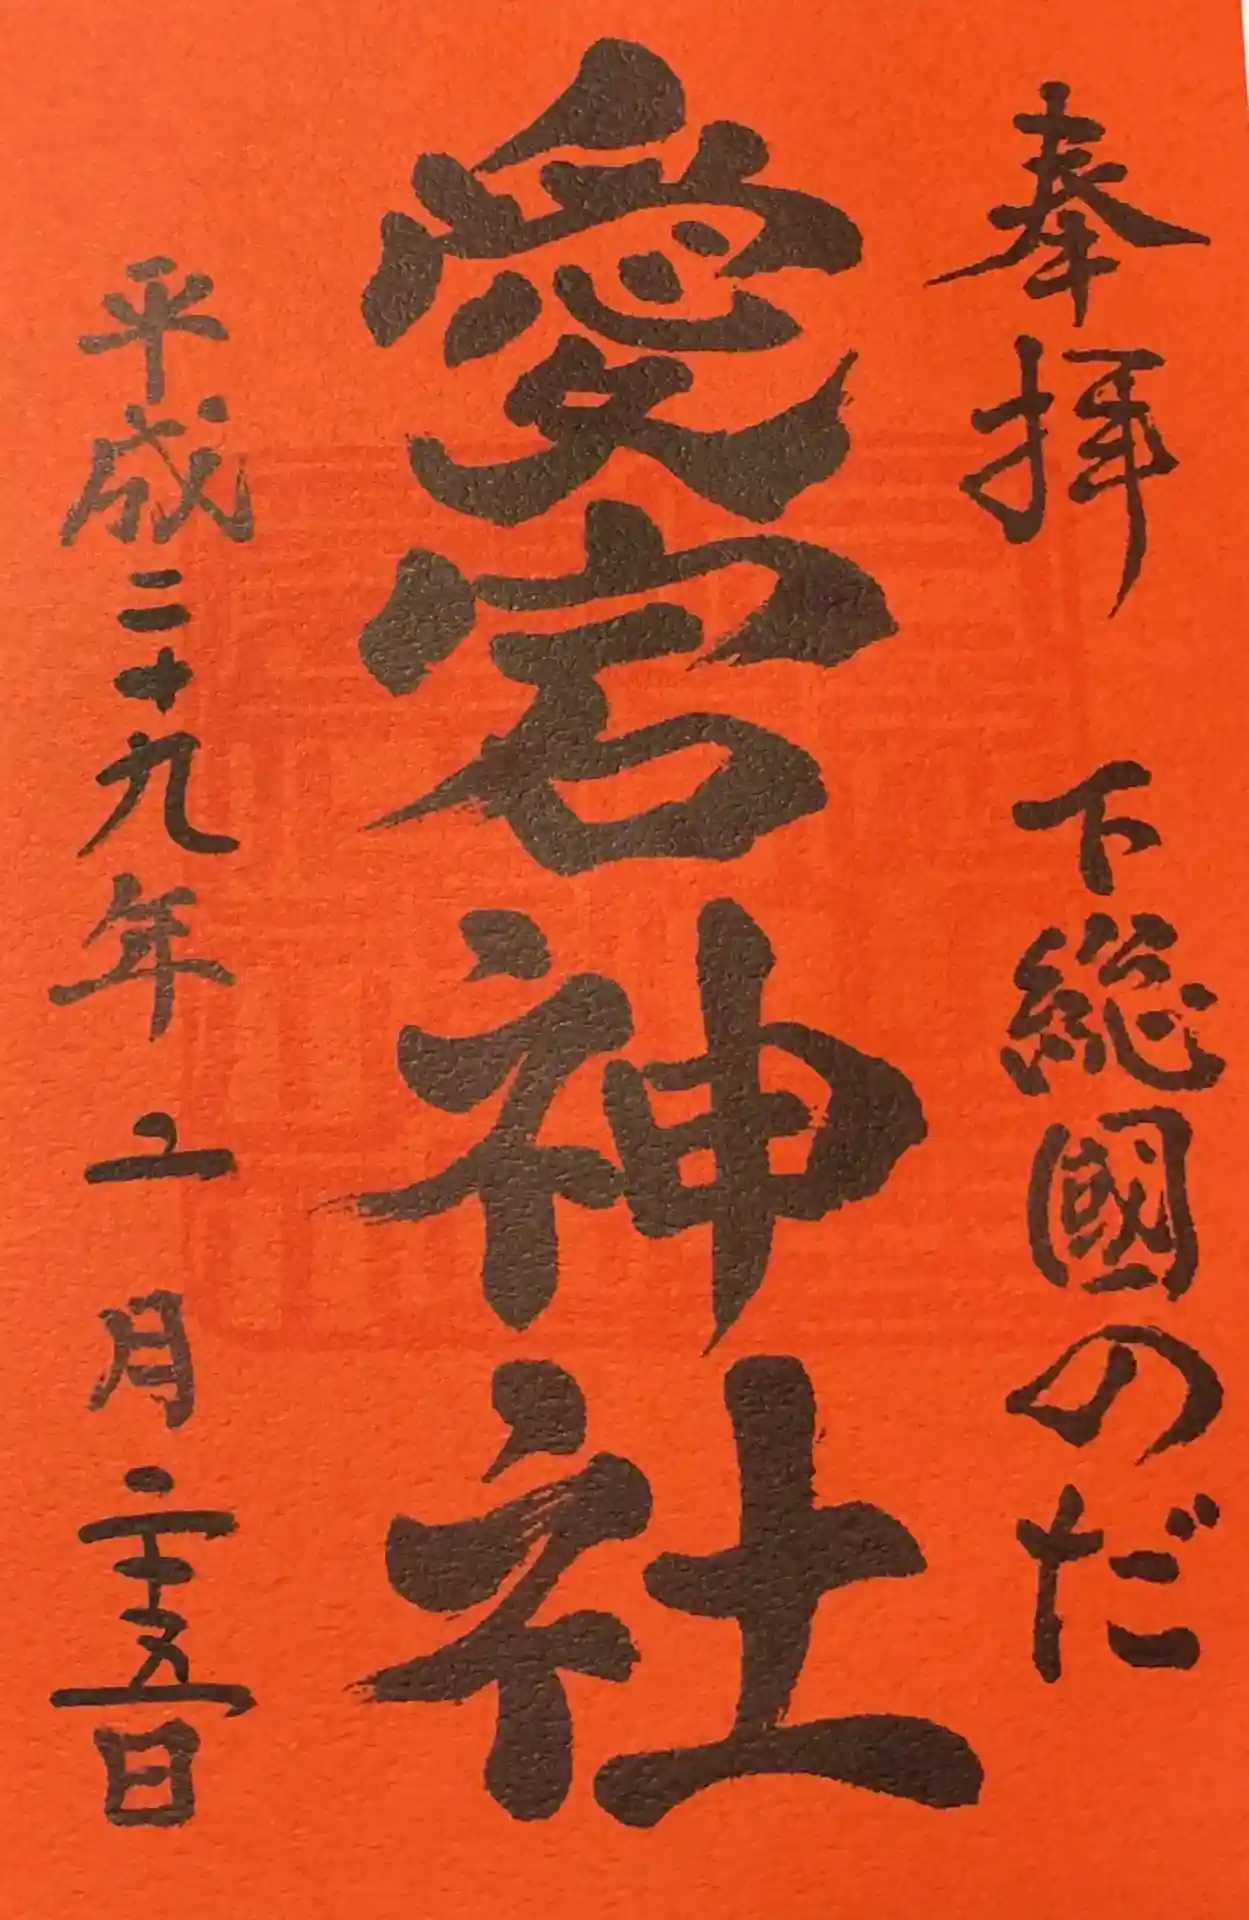 奉拝 下総國のだ
愛宕神社
平成二十九年二月二十五日